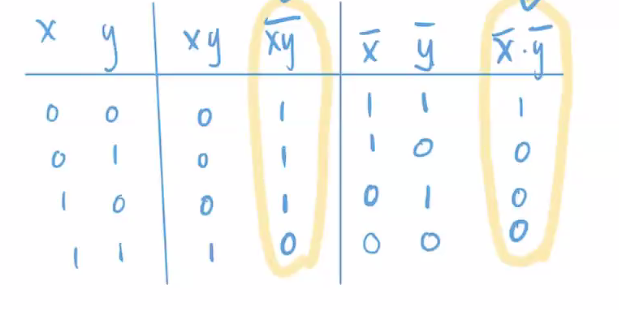 x y xy x̅y̅ x̅ y̅ x̅·y̅
0 0 0 1 1 1 1
0 1 0 1 1 0 0
1 0 0 1 0 1 0
1 1 1 0 0 0 0